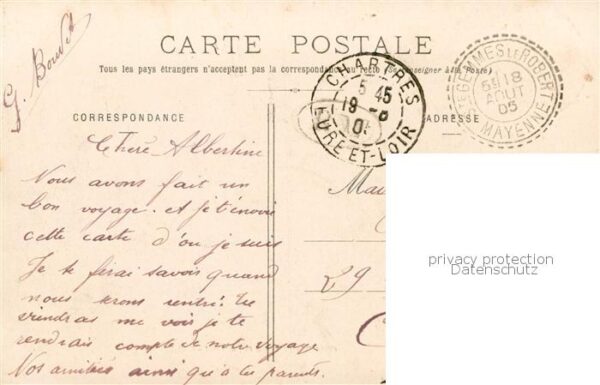 G. Bouvet
CARTE POSTALE
Tous les pays étrangers n'acceptent pas la correspondance au recto (Se renseigner à la Poste)
CORRESPONDANCE
ADRESSE
CHARTRES
5 45
19 -8
05
EURE-ET-LOIR
GEMMES LE ROBERT
18
AOUT
05
MAYENNE
Chère Albertine
Nous avons fait un
bon voyage. et je t'envoie
cette carte d'où je suis
Je te ferai savoir quand
nous serons rentré. Tu
viendras me voir je te
rendrais compte de notre voyage
Nos amitiés ainsi qu'à tes parents.
29
privacy protection
Datenschutz